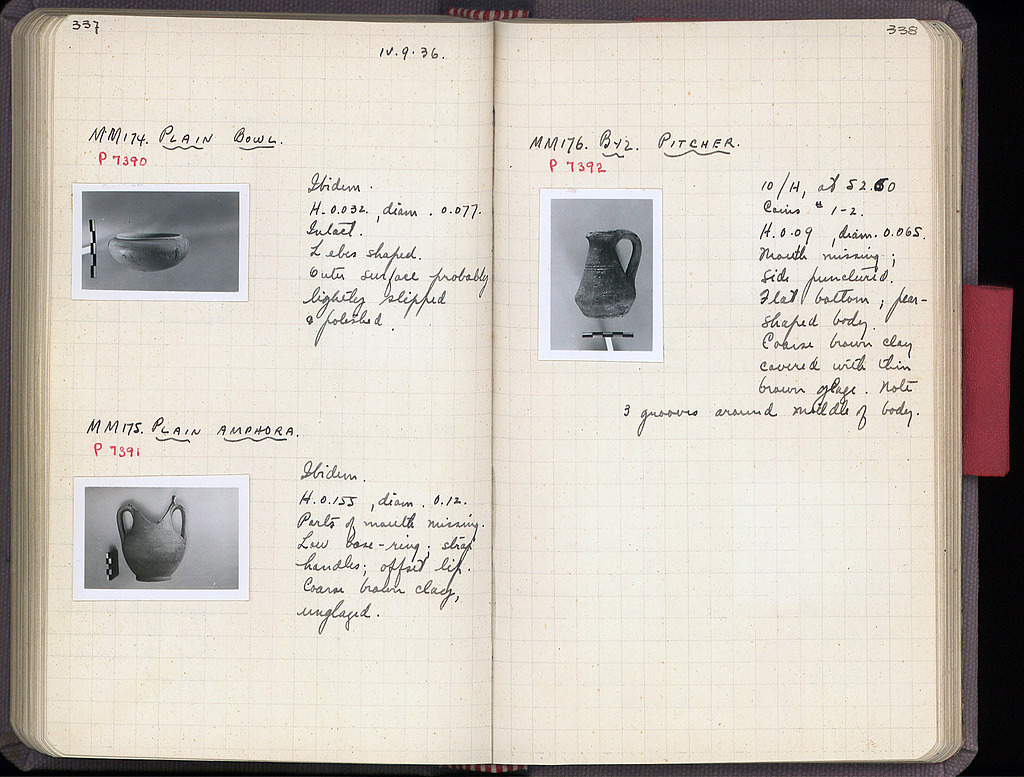 337
IV.9.36.
MM174. PLAIN BOWL.
P 7390
Ibidem.
H. 0.032, diam. 0.077.
Intact.
Lebes shaped.
Outer surface probably
lightly slipped
& polished.
MM175. PLAIN AMPHORA.
P 7391
Ibidem.
H. 0.155, diam. 0.12.
Parts of mouth missing.
Low base-ring; strap
handles; offset lip.
Coarse brown clay,
unglazed.
338
MM176. BYZ. PITCHER.
P 7392
10/H, at 52.60
Coins # 1-2.
H. 0.09, diam. 0.065.
Mouth missing;
side punctured.
Flat bottom; pear-
shaped body.
Coarse brown clay
covered with thin
brown glaze. Note
3 grooves around middle of body.